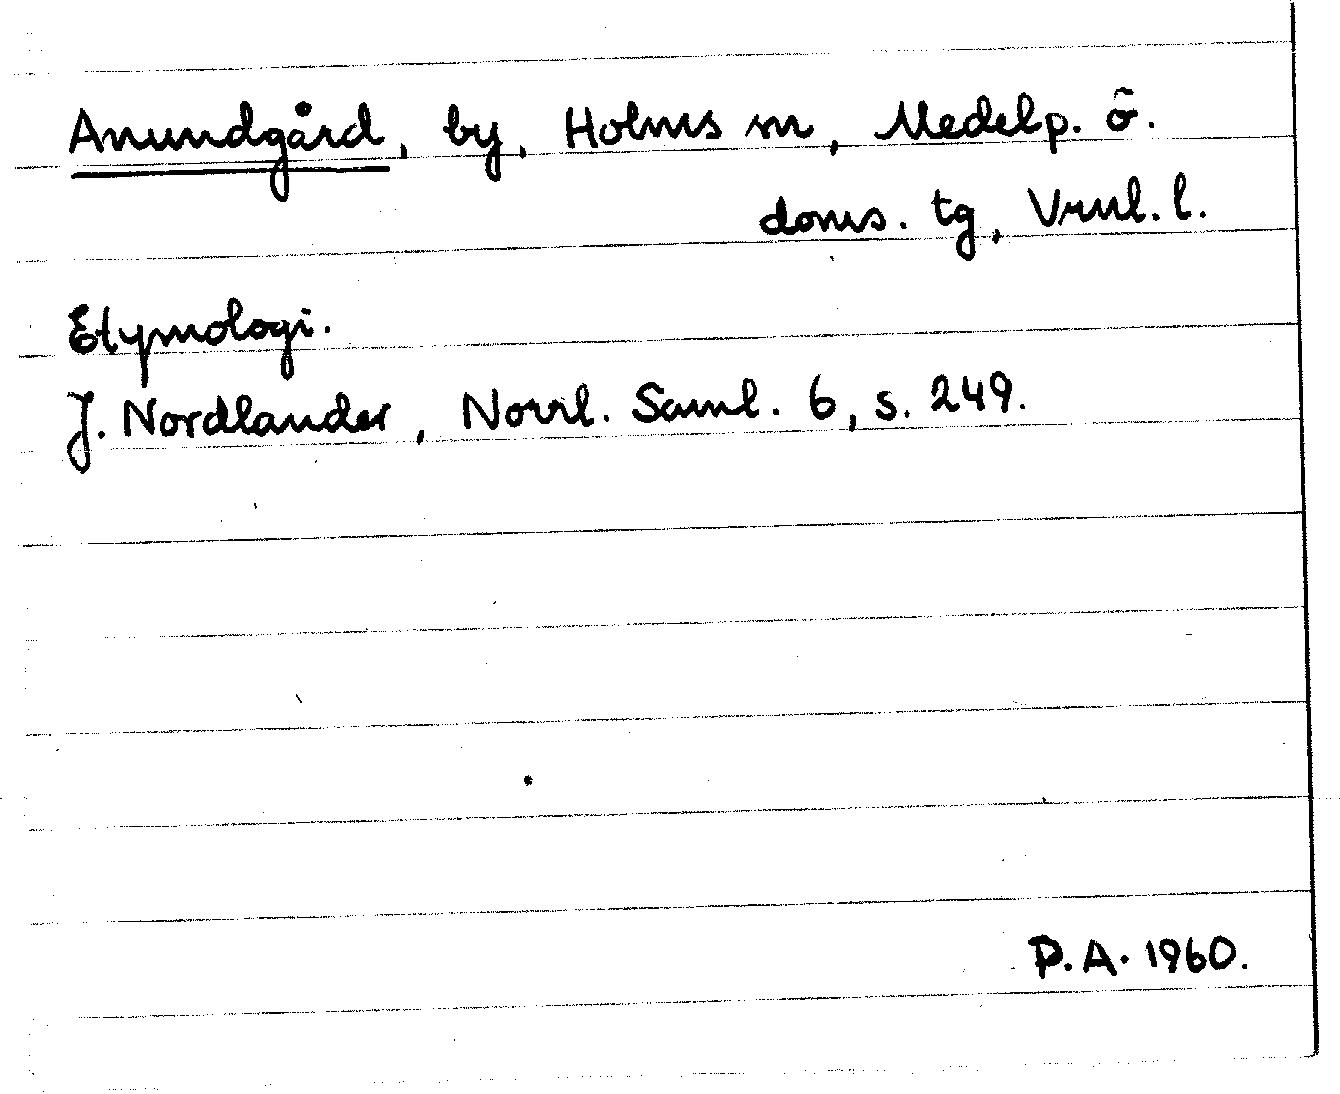 Anundgård, by, Holms sn, Medelp. ö.
doms. tg, Vrnl. l.
Etymologi.
J. Nordlander, Norrl. Saml. 6, s. 249.
P.A. 1960.